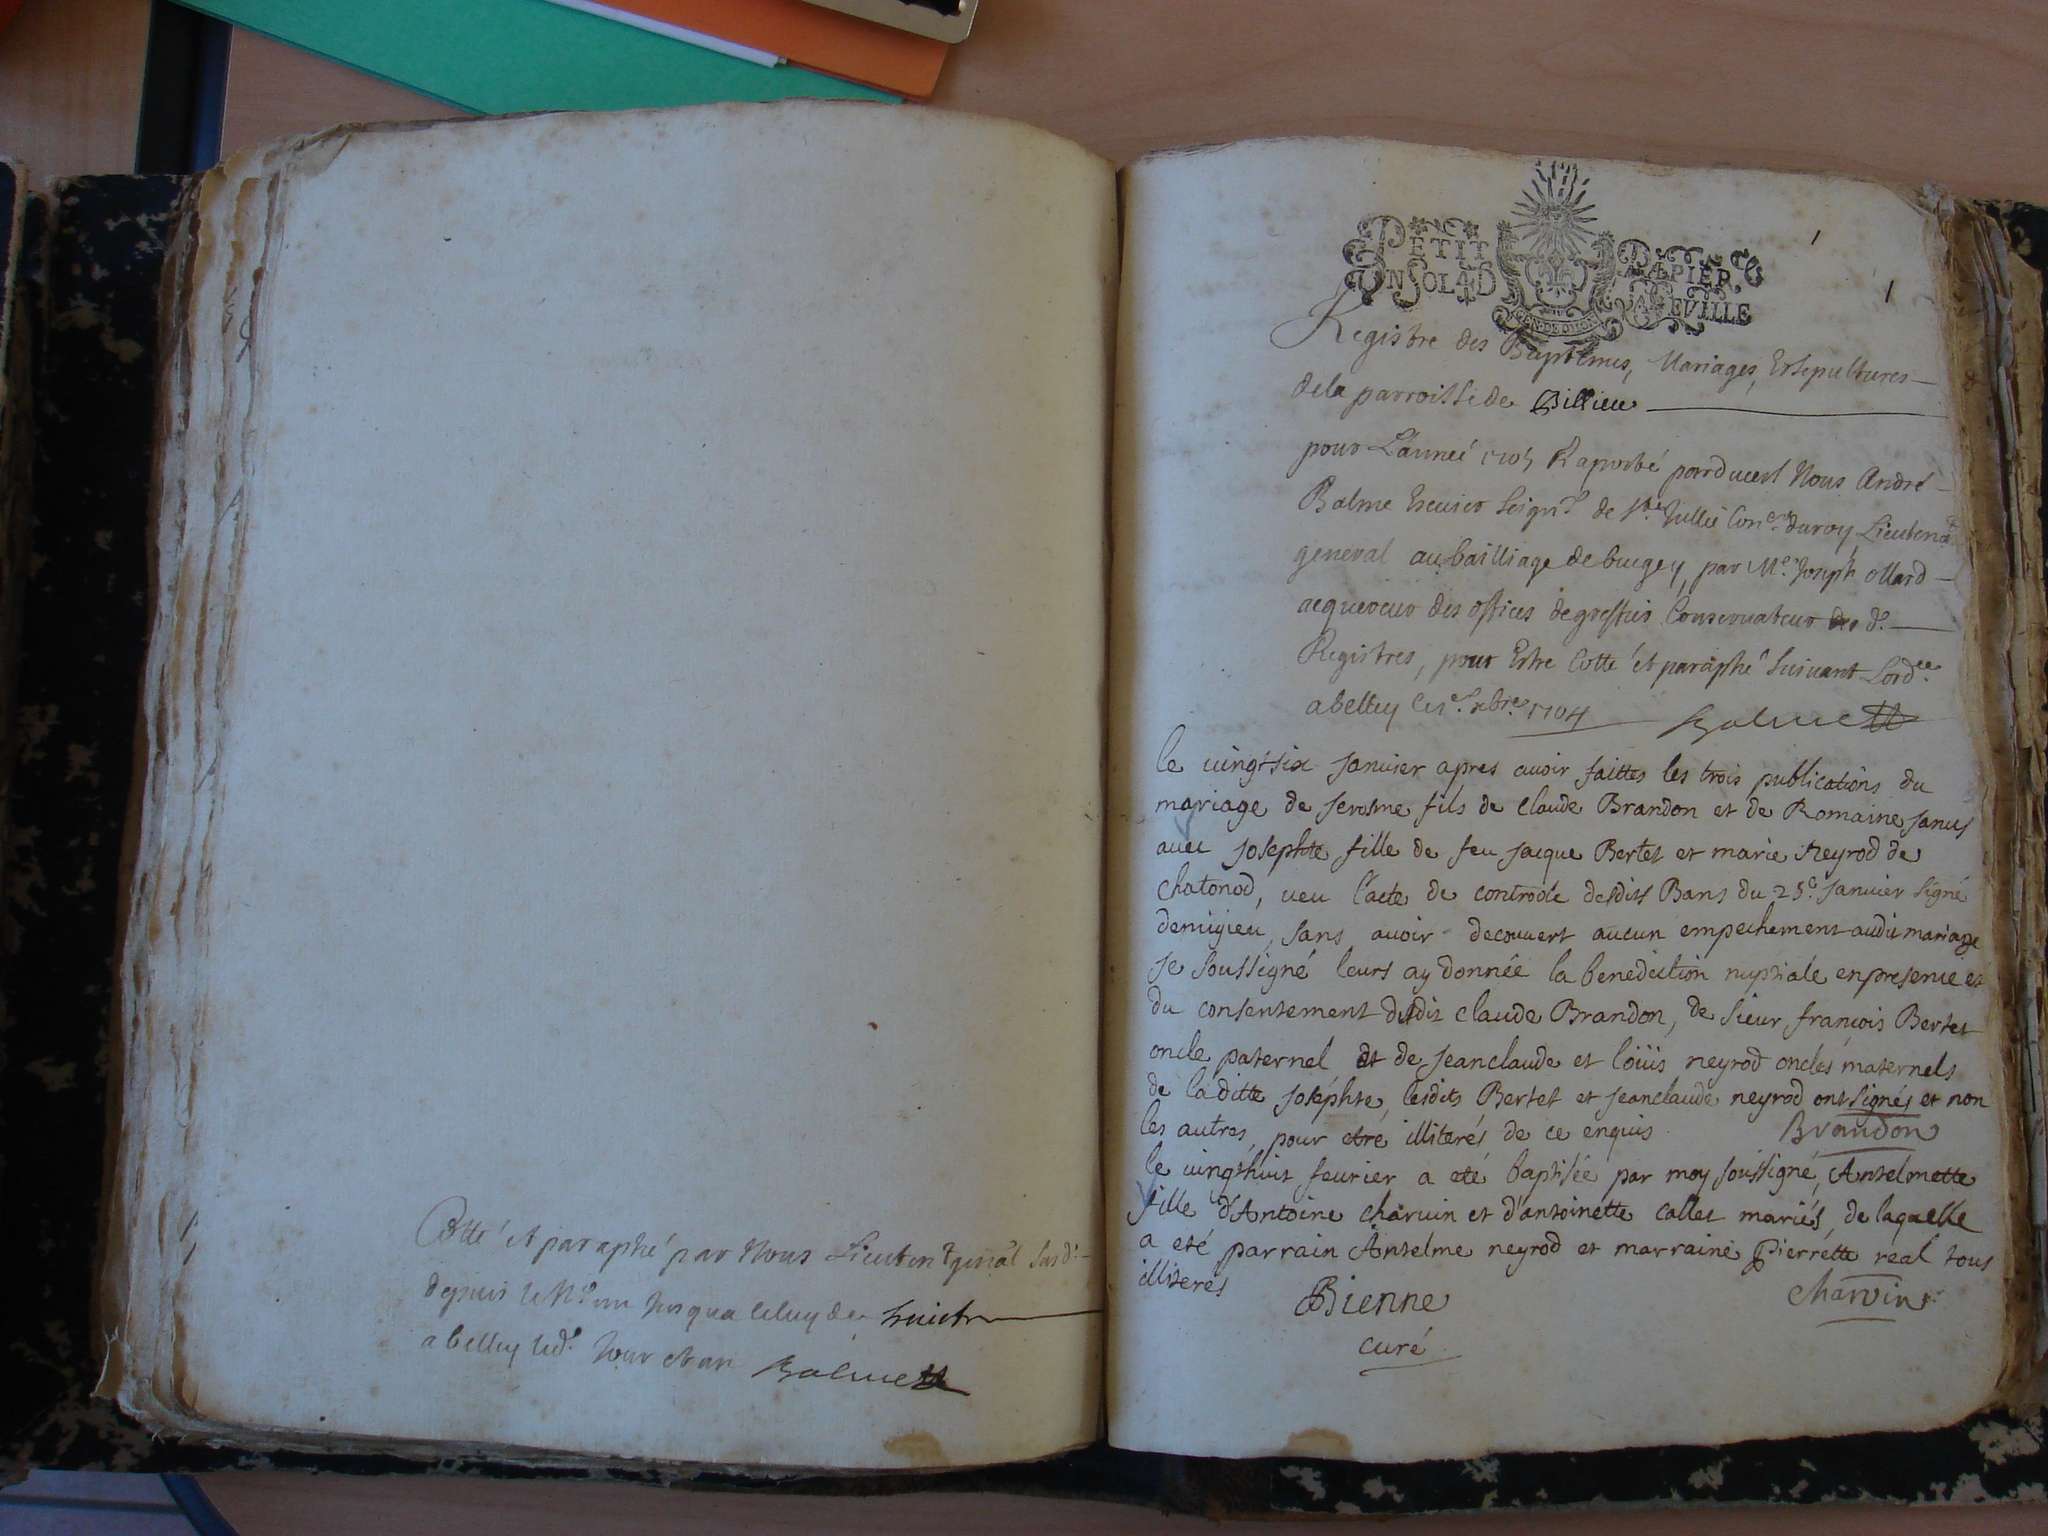 Cotté et paraphé par Nous Lieuten.t gñal susd.
depuis le N.o un Jusqua celuy de huict
a belley led. Jour et an Balme
PETIT PAPIER
UN SOL 4 D LA FEVILLE
GEN. DE DIION
1
1
Registre des Baptemes, Mariages, Et sepultures
de la parroisse de Billieu
pour L'anneé 1705 Raporté pardevent Nous André
Balme Escuier Seign.r de S.te Jullie Con.er du roy Lieutena.t
general au bailliage de bugey, par M.e Joseph ollard
acquereur des offices de greffier Conservateur des d.
Registres, pour Estre Cotté et paraphé Suivant Lord.ce
a belley le 1.er xbre 1704 Balme
le vingt six Janvier apres avoir faittes les trois publications du
mariage de Jerosme fils de Claude Brandon et de Romaine Janus
avec Josephte fille de feu Jacque Bertet et marie Neyrod de
Chatonod, veu l'acte de controole desdits Bans du 25.e Janvier signé
demigieu, sans avoir decouvert aucun empechement audit mariage
Je soussigné leurs ay donnée la benediction nuptiale en presence et
du consentement dudit claude Brandon, de sieur françois Bertet
oncle paternel et de Jeanclaude et loüis neyrod oncles maternels
de laditte Josephte, lesdits Bertet et Jeanclaude neyrod ont signés et non
les autres pour etre illiterés de ce enquis Brandon
le vingthuit fevrier a eté baptisée par moy soussigné, Antelmette
fille d'Antoine charvin et d'antoinette callet mariés, de laquelle
a eté parrain Antelme neyrod et marraine Pierrette real tous
illiterés
Bienne charvin
curé